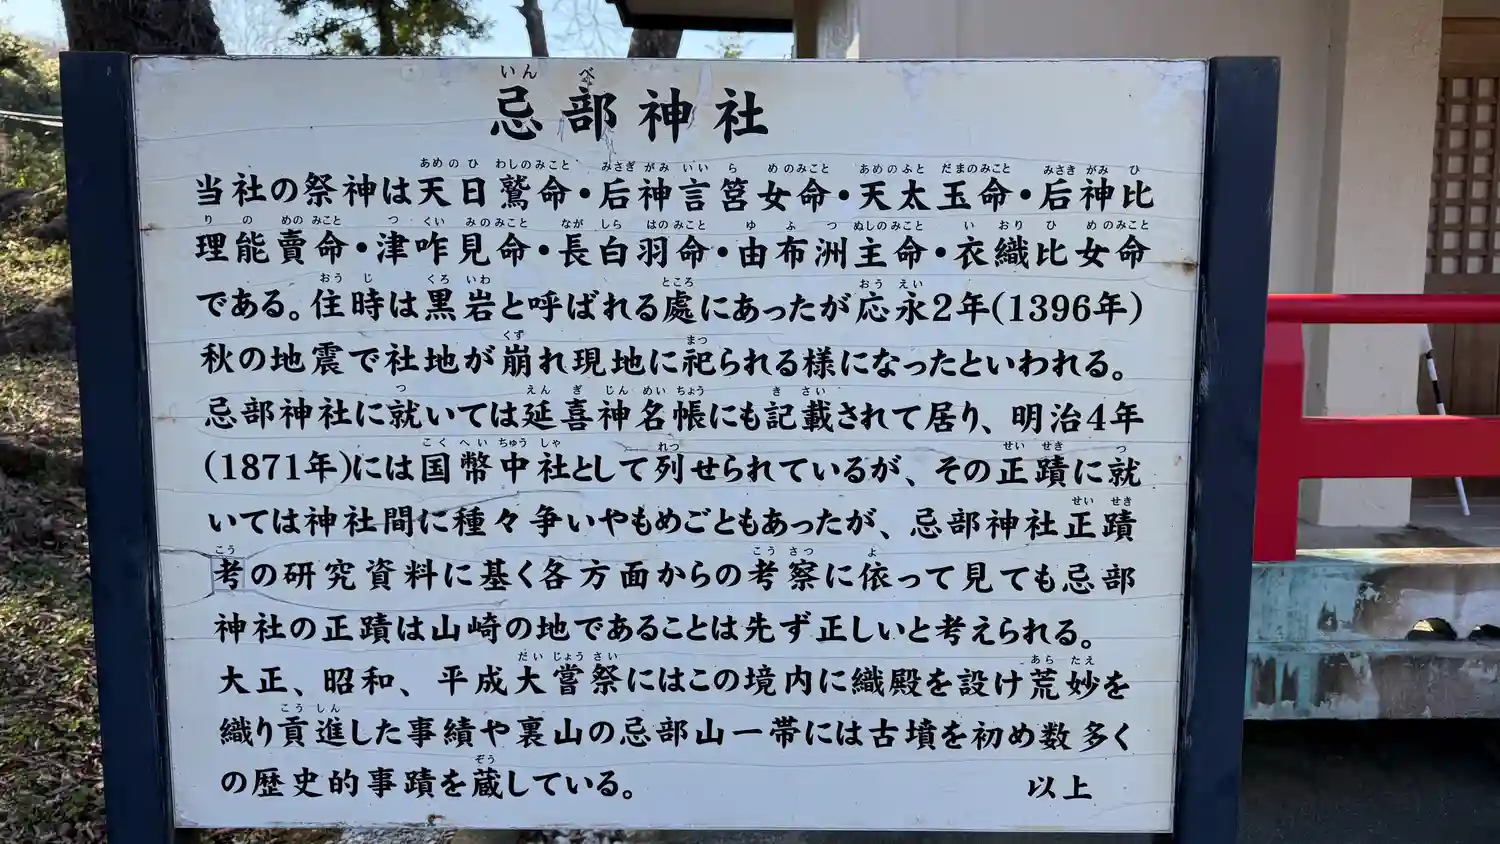 いんべ
忌部神社
あめのひ わしのみこと みさぎがみ いいらめのみこと あめのふとだまのみこと みさきがみひ
当社の祭神は天日鷲命・后神言筥女命・天太玉命・后神比
りのめのみこと つくいみのみこと ながしらはのみこと ゆふつぬしのみこと いおりひめのみこと
理能賣命・津咋見命・長白羽命・由布洲主命・衣織比女命
おうじ くろいわ ところ おうえい
である。住時は黒岩と呼ばれる處にあったが応永2年(1396年)
くず まつ
秋の地震で社地が崩れ現地に祀られる様になったといわれる。
つ えんぎじんめいちょう きさい
忌部神社に就いては延喜神名帳にも記載されて居り、明治4年
こくへいちゅうしゃ れつ せいせき つ
(1871年)には国幣中社として列せられているが、その正蹟に就
せいせき
いては神社間に種々争いやもめごともあったが、忌部神社正蹟
こう こうさつ よ
考の研究資料に基く各方面からの考察に依って見ても忌部
神社の正蹟は山崎の地であることは先ず正しいと考えられる。
だいじょうさい あらたえ
大正、昭和、平成大嘗祭にはこの境内に織殿を設け荒妙を
こうしん
織り貢進した事績や裏山の忌部山一帯には古墳を初め数多く
ぞう
の歴史的事蹟を蔵している。 以上